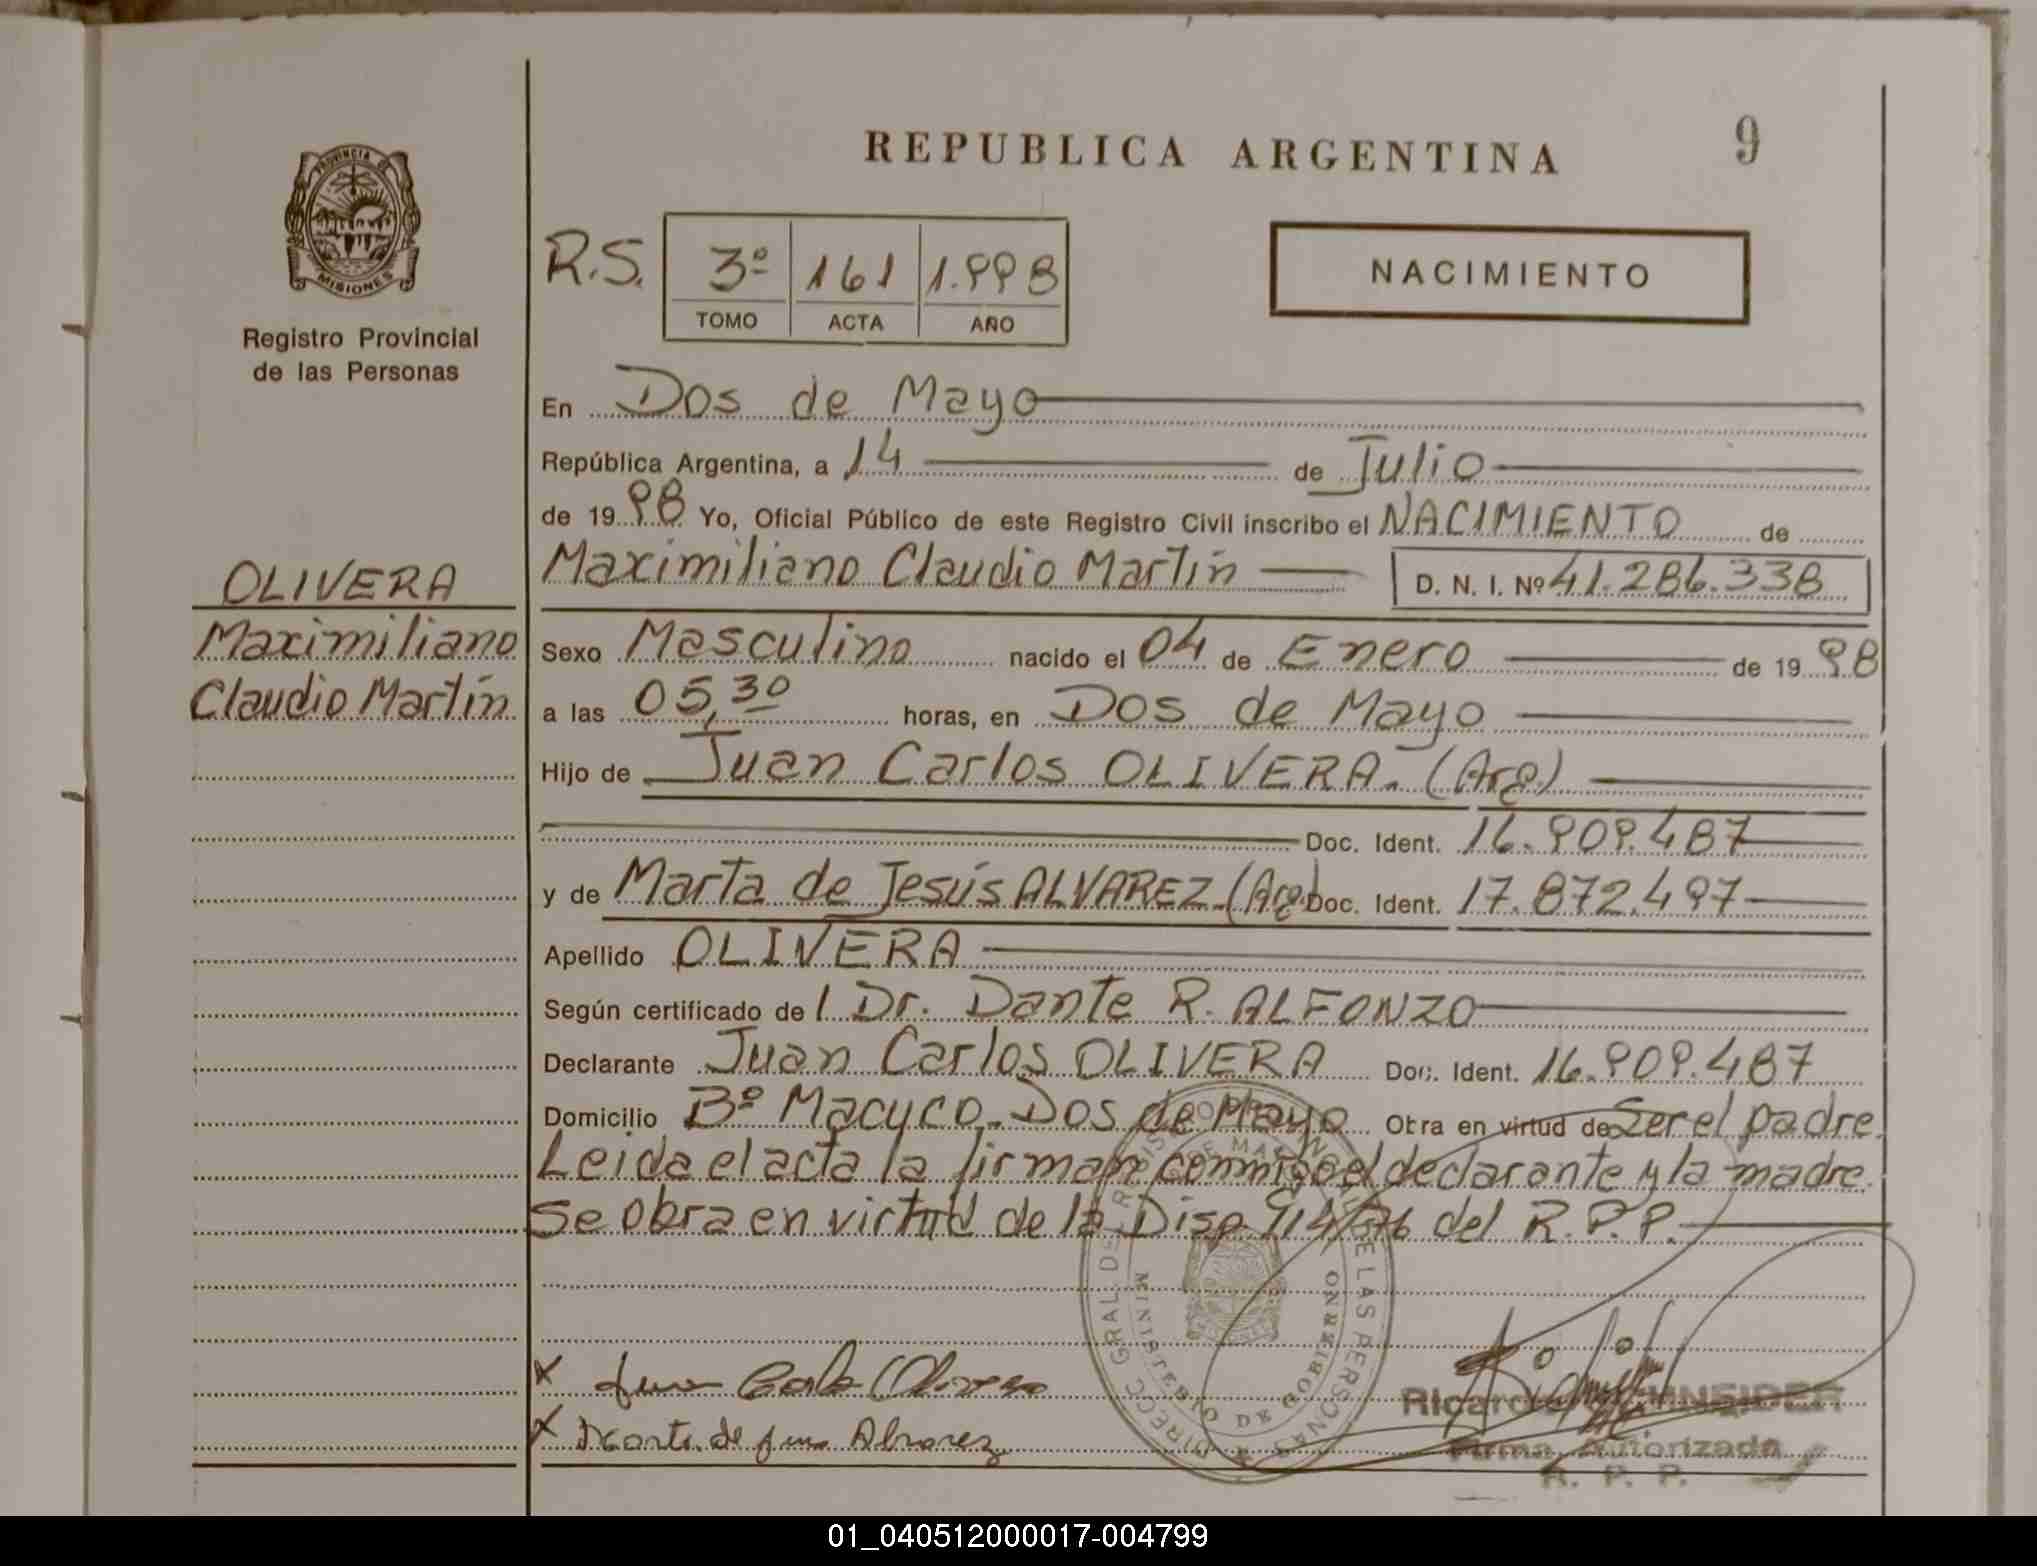 REPUBLICA ARGENTINA
9
PROVINCIA DE
MISIONES
Registro Provincial
de las Personas
R.S. 3º 161 1.998
TOMO ACTA AÑO
NACIMIENTO
En Dos de Mayo
República Argentina, a 14 de Julio
de 19 98 Yo, Oficial Público de este Registro Civil inscribo el NACIMIENTO de
Maximiliano Claudio Martín D. N. I. Nº 41.286.338
OLIVERA
Maximiliano
Claudio Martín
Sexo Masculino nacido el 04 de Enero de 19 98
a las 05,30 horas, en Dos de Mayo
Hijo de Juan Carlos OLIVERA.- (Arg.)
Doc. Ident. 16.909.487
y de Marta de Jesús ALVAREZ.(Arg) Doc. Ident. 17.872.497
Apellido OLIVERA
Según certificado de l Dr. Dante R. ALFONZO
Declarante Juan Carlos OLIVERA Doc. Ident. 16.909.487
Domicilio Bº Macuco. Dos de Mayo Obra en virtud de Ser el padre.
Leida el acta la firman conmigo el declarante y la madre.
Se obra en virtud de la Disp. 914/76 del R.P.P.
DIRECC GRAL DE REGISTRO PROVINCIAL DE LAS PERSONAS
MINISTERIO DE GOBIERNO
X Juan Carlos Olivera
X Marta de Jesus Alvarez
Ricardo SCHNEIDER
Firma Autorizada
R. P. P.
01_040512000017-004799